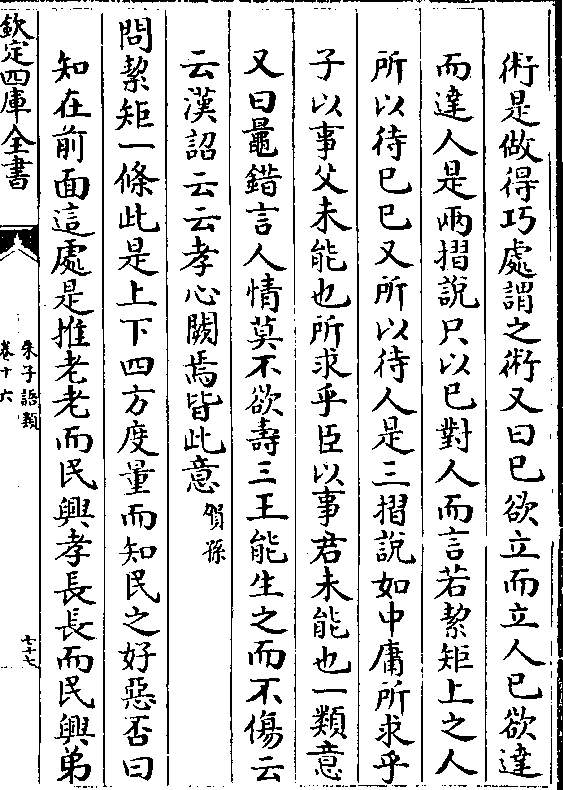 術是做得巧處謂之術又曰已欲立而立人已欲達
而達人是兩摺說只以已對人而言若絜矩上之人
所以待已已又所以待人是三摺說如中庸所求乎
子以事父未能也所求乎臣以事君未能也一類意
又曰鼂錯言人情莫不欲壽三王能生之而不傷云
云漢詔云云孝心闕焉皆此意賀孫
問絜矩一條此是上下四方度量而知民之好惡否曰
知在前面這處是推老老而民興孝長長而民興弟
欽定四庫全書
朱子語類
卷十六
七十七